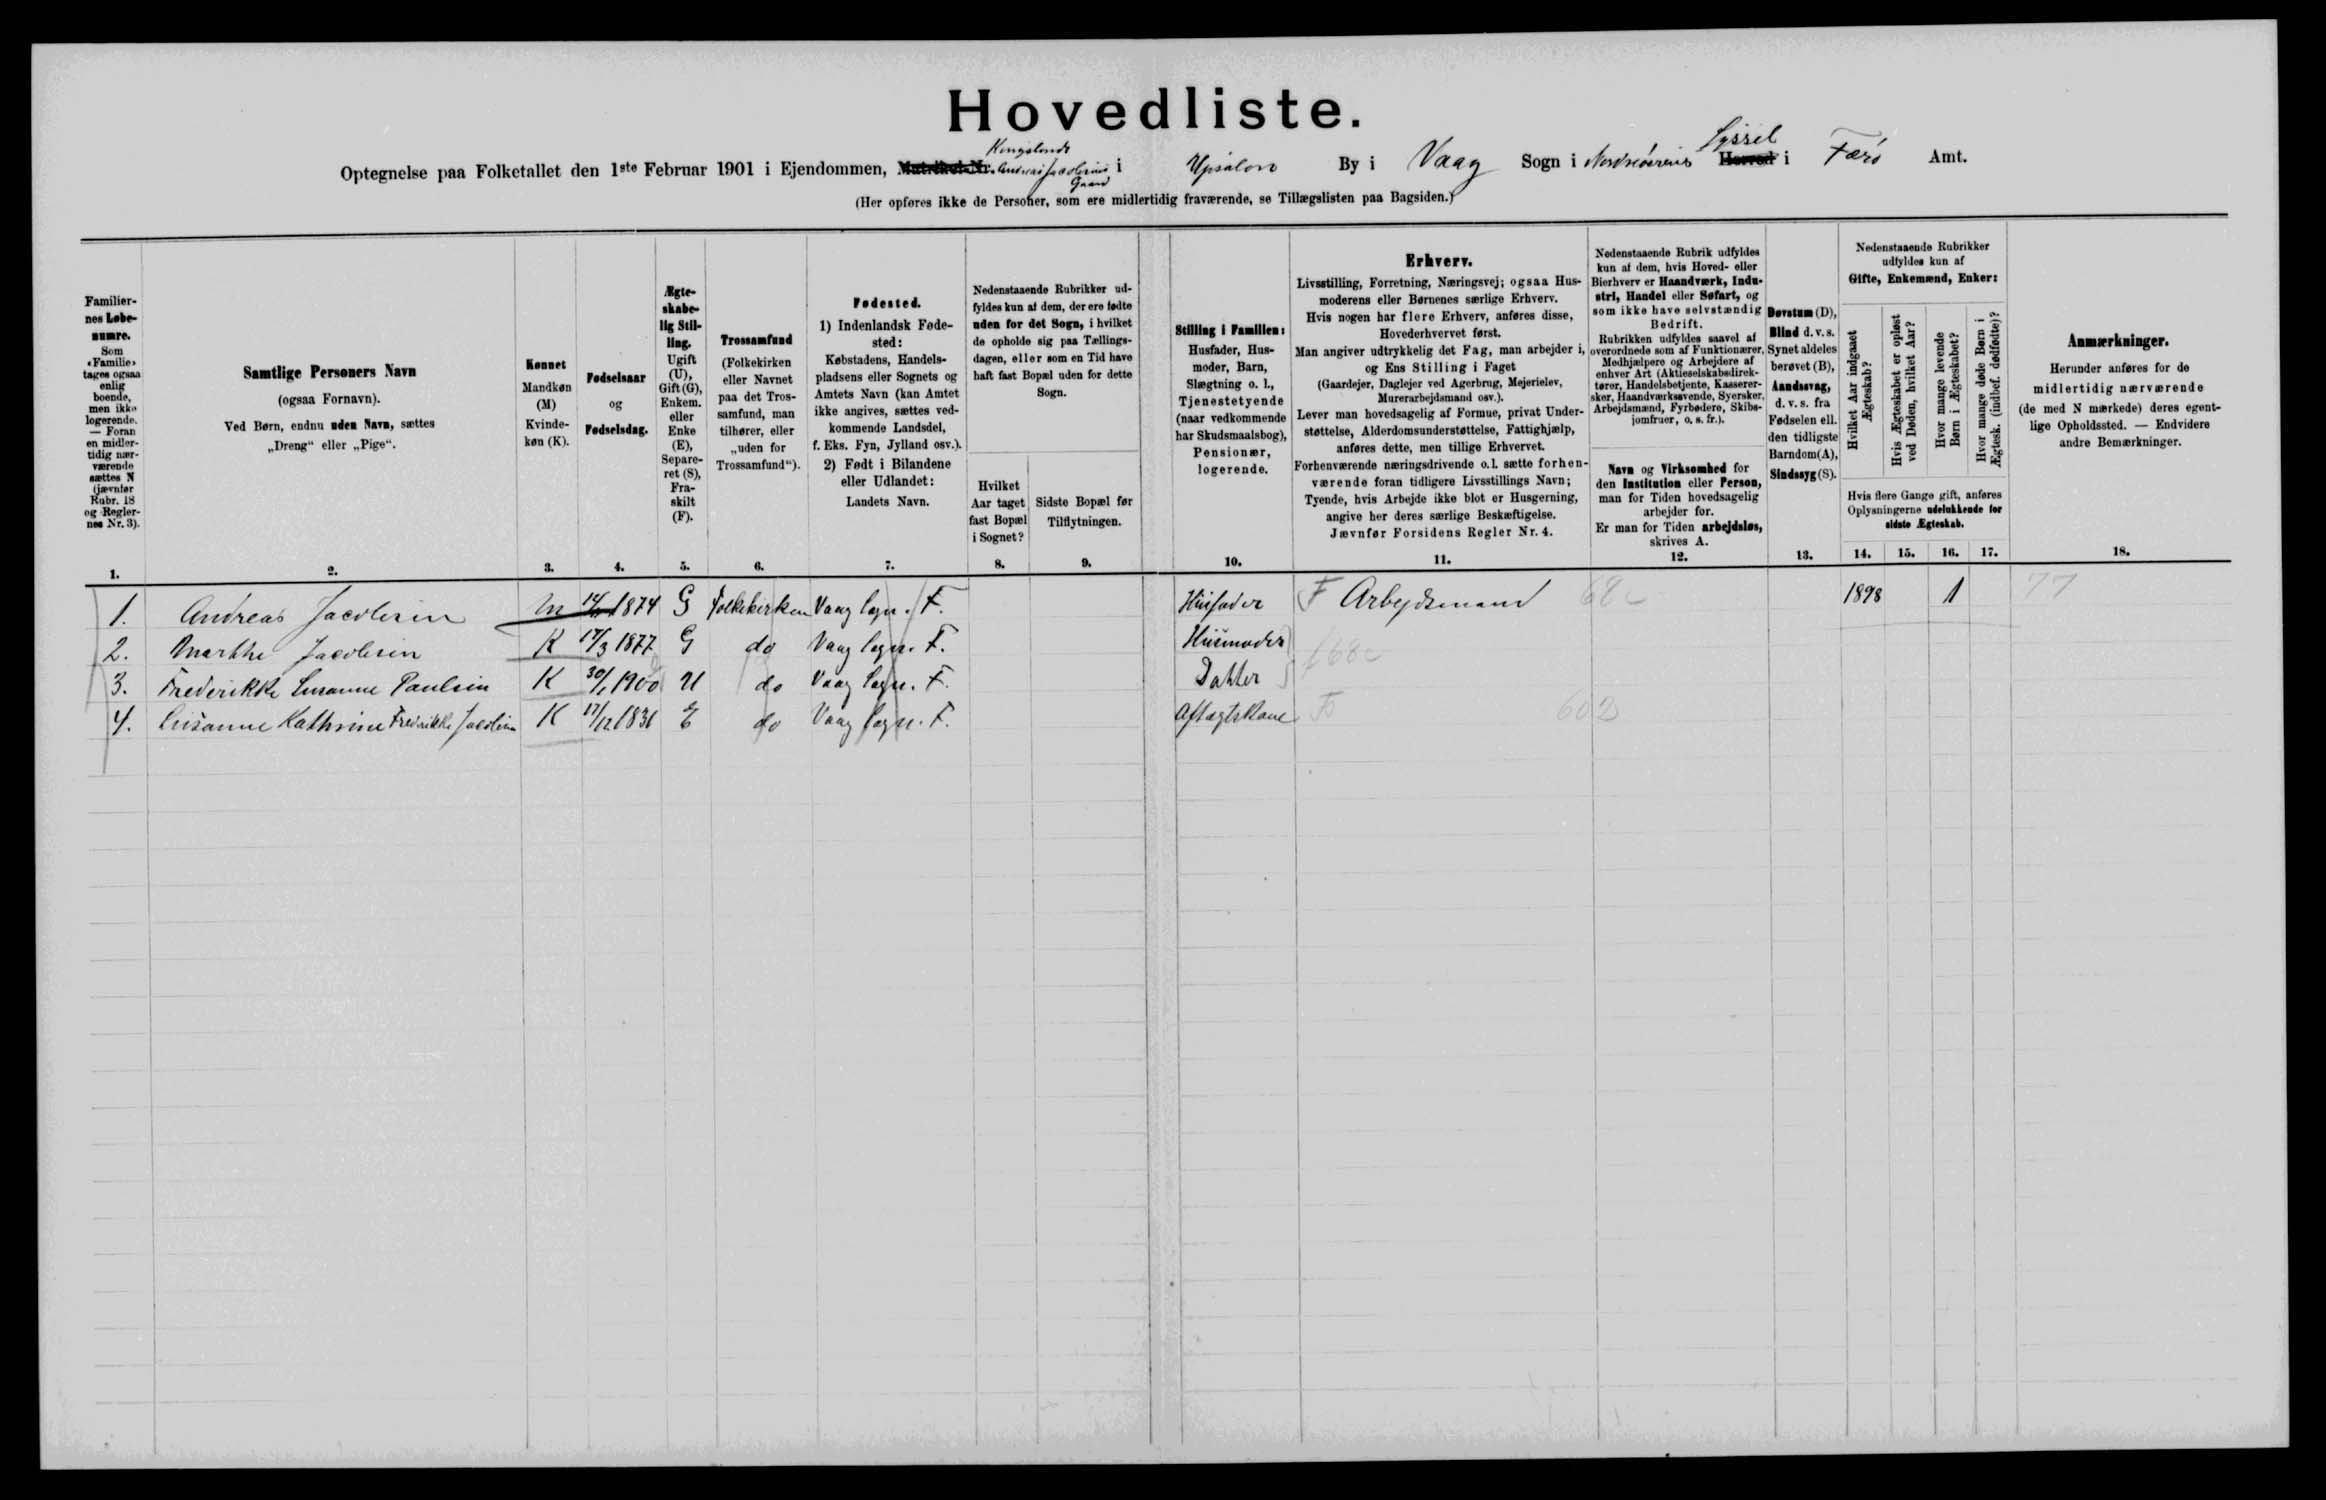 Hovedliste.
Kongslands Syssel
Optegnelse paa Folketallet den 1ste Februar 1901 i Ejendommen, Matrikel-Nr. Andreas Jacobsens Gaard i Upsalon By i Vaag Sogn i Herred i Færö Amt.
(Her opføres ikke de Personer, som ere midlertidig fraværende, se Tillægslisten paa Bagsiden.)
Familiernes Løbenumre.
Som «Familie» tages ogsaa enlig boende, men ikke logerende. — Foran en midlertidig nærværende sættes N (jævnfør Rubr. 18 og Reglernes Nr. 3).
1.
Samtlige Personers Navn
(ogsaa Fornavn).
Ved Børn, endnu uden Navn, sættes
„Dreng“ eller „Pige“.
2.
Kønnet
Mandkøn (M)
Kvindekøn (K).
3.
Fødselsaar
og
Fødselsdag.
4.
Ægteskabelig Stilling.
Ugift (U), Gift (G), Enkem. eller Enke (E), Separeret (S), Fraskilt (F).
5.
Trossamfund
(Folkekirken eller Navnet paa det Trossamfund, man tilhører, eller „uden for Trossamfund“).
6.
Fødested.
1) Indenlandsk Fødested:
Købstadens, Handelspladsens eller Sognets og Amtets Navn (kan Amtet ikke angives, sættes vedkommende Landsdel, f. Eks. Fyn, Jylland osv.).
2) Født i Bilandene eller Udlandet:
Landets Navn.
7.
Nedenstaaende Rubrikker udfyldes kun af dem, der ere fødte uden for det Sogn, i hvilket de opholde sig paa Tællingsdagen, eller som en Tid have haft fast Bopæl uden for dette Sogn.
Hvilket Aar taget fast Bopæl i Sognet?
8.
Sidste Bopæl før Tilflytningen.
9.
Stilling i Familien:
Husfader, Husmoder, Barn, Slægtning o. l., Tjenestetyende (naar vedkommende har Skudsmaalsbog), Pensionær, logerende.
10.
Erhverv.
Livsstilling, Forretning, Næringsvej; ogsaa Husmoderens eller Børnenes særlige Erhverv.
Hvis nogen har flere Erhverv, anføres disse, Hovederhvervet først.
Man angiver udtrykkelig det Fag, man arbejder i, og Ens Stilling i Faget
(Gaardejer, Daglejer ved Agerbrug, Mejerielev, Murerarbejdsmand osv.).
Lever man hovedsagelig af Formue, privat Understøttelse, Alderdomsunderstøttelse, Fattighjælp, anføres dette, men tillige Erhvervet.
Forhenværende næringsdrivende o. l. sætte forhenværende foran tidligere Livsstillings Navn;
Tyende, hvis Arbejde ikke blot er Husgerning, angive her deres særlige Beskæftigelse.
Jævnfør Forsidens Regler Nr. 4.
11.
Nedenstaaende Rubrik udfyldes kun af dem, hvis Hoved- eller Bierhverv er Haandværk, Industri, Handel eller Søfart, og som ikke have selvstændig Bedrift.
Rubrikken udfyldes saavel af overordnede som af Funktionærer, Medhjælpere og Arbejdere af enhver Art (Aktieselskabsdirektører, Handelsbetjente, Kasserersker, Haandværkssvende, Syersker, Arbejdsmænd, Fyrbødere, Skibsjomfruer, o. s. fr.).
Navn og Virksomhed for den Institution eller Person, man for Tiden hovedsagelig arbejder for.
Er man for Tiden arbejdsløs, skrives A.
12.
Døvstum (D), Blind d. v. s. Synet aldeles berøvet (B), Aandssvag, d. v. s. fra Fødselen ell. den tidligste Barndom (A), Sindssyg (S).
13.
Nedenstaaende Rubrikker udfyldes kun af
Gifte, Enkemænd, Enker:
Hvilket Aar indgaaet Ægteskab?
Hvis Ægteskabet er opløst ved Døden, hvilket Aar?
Hvor mange levende Børn i Ægteskabet?
Hvor mange døde Børn i Ægtesk. (indbef. dødfødte)?
Hvis flere Gange gift, anføres Oplysningerne udelukkende for sidste Ægteskab.
14. 15. 16. 17.
Anmærkninger.
Herunder anføres for de midlertidig nærværende (de med N mærkede) deres egentlige Opholdssted. — Endvidere andre Bemærkninger.
18.
1. Andreas Jacobsen M 1874 G Folkekirken Vaag Sogn. F. Husfader F Arbejdsmand 68c 1898 1 77
2. Marthe Jacobsen K 17/3 1877 G do Vaag Sogn. F. Husmoder
f 68c
3. Frederikke Susanne Paulsen K 30/1 1900 U do Vaag Sogn. F. Datter
4. Susanne Kathrine Frederikke Jacobsen K 17/12 1831 E do Vaag Sogn. F. Aftægtskone F